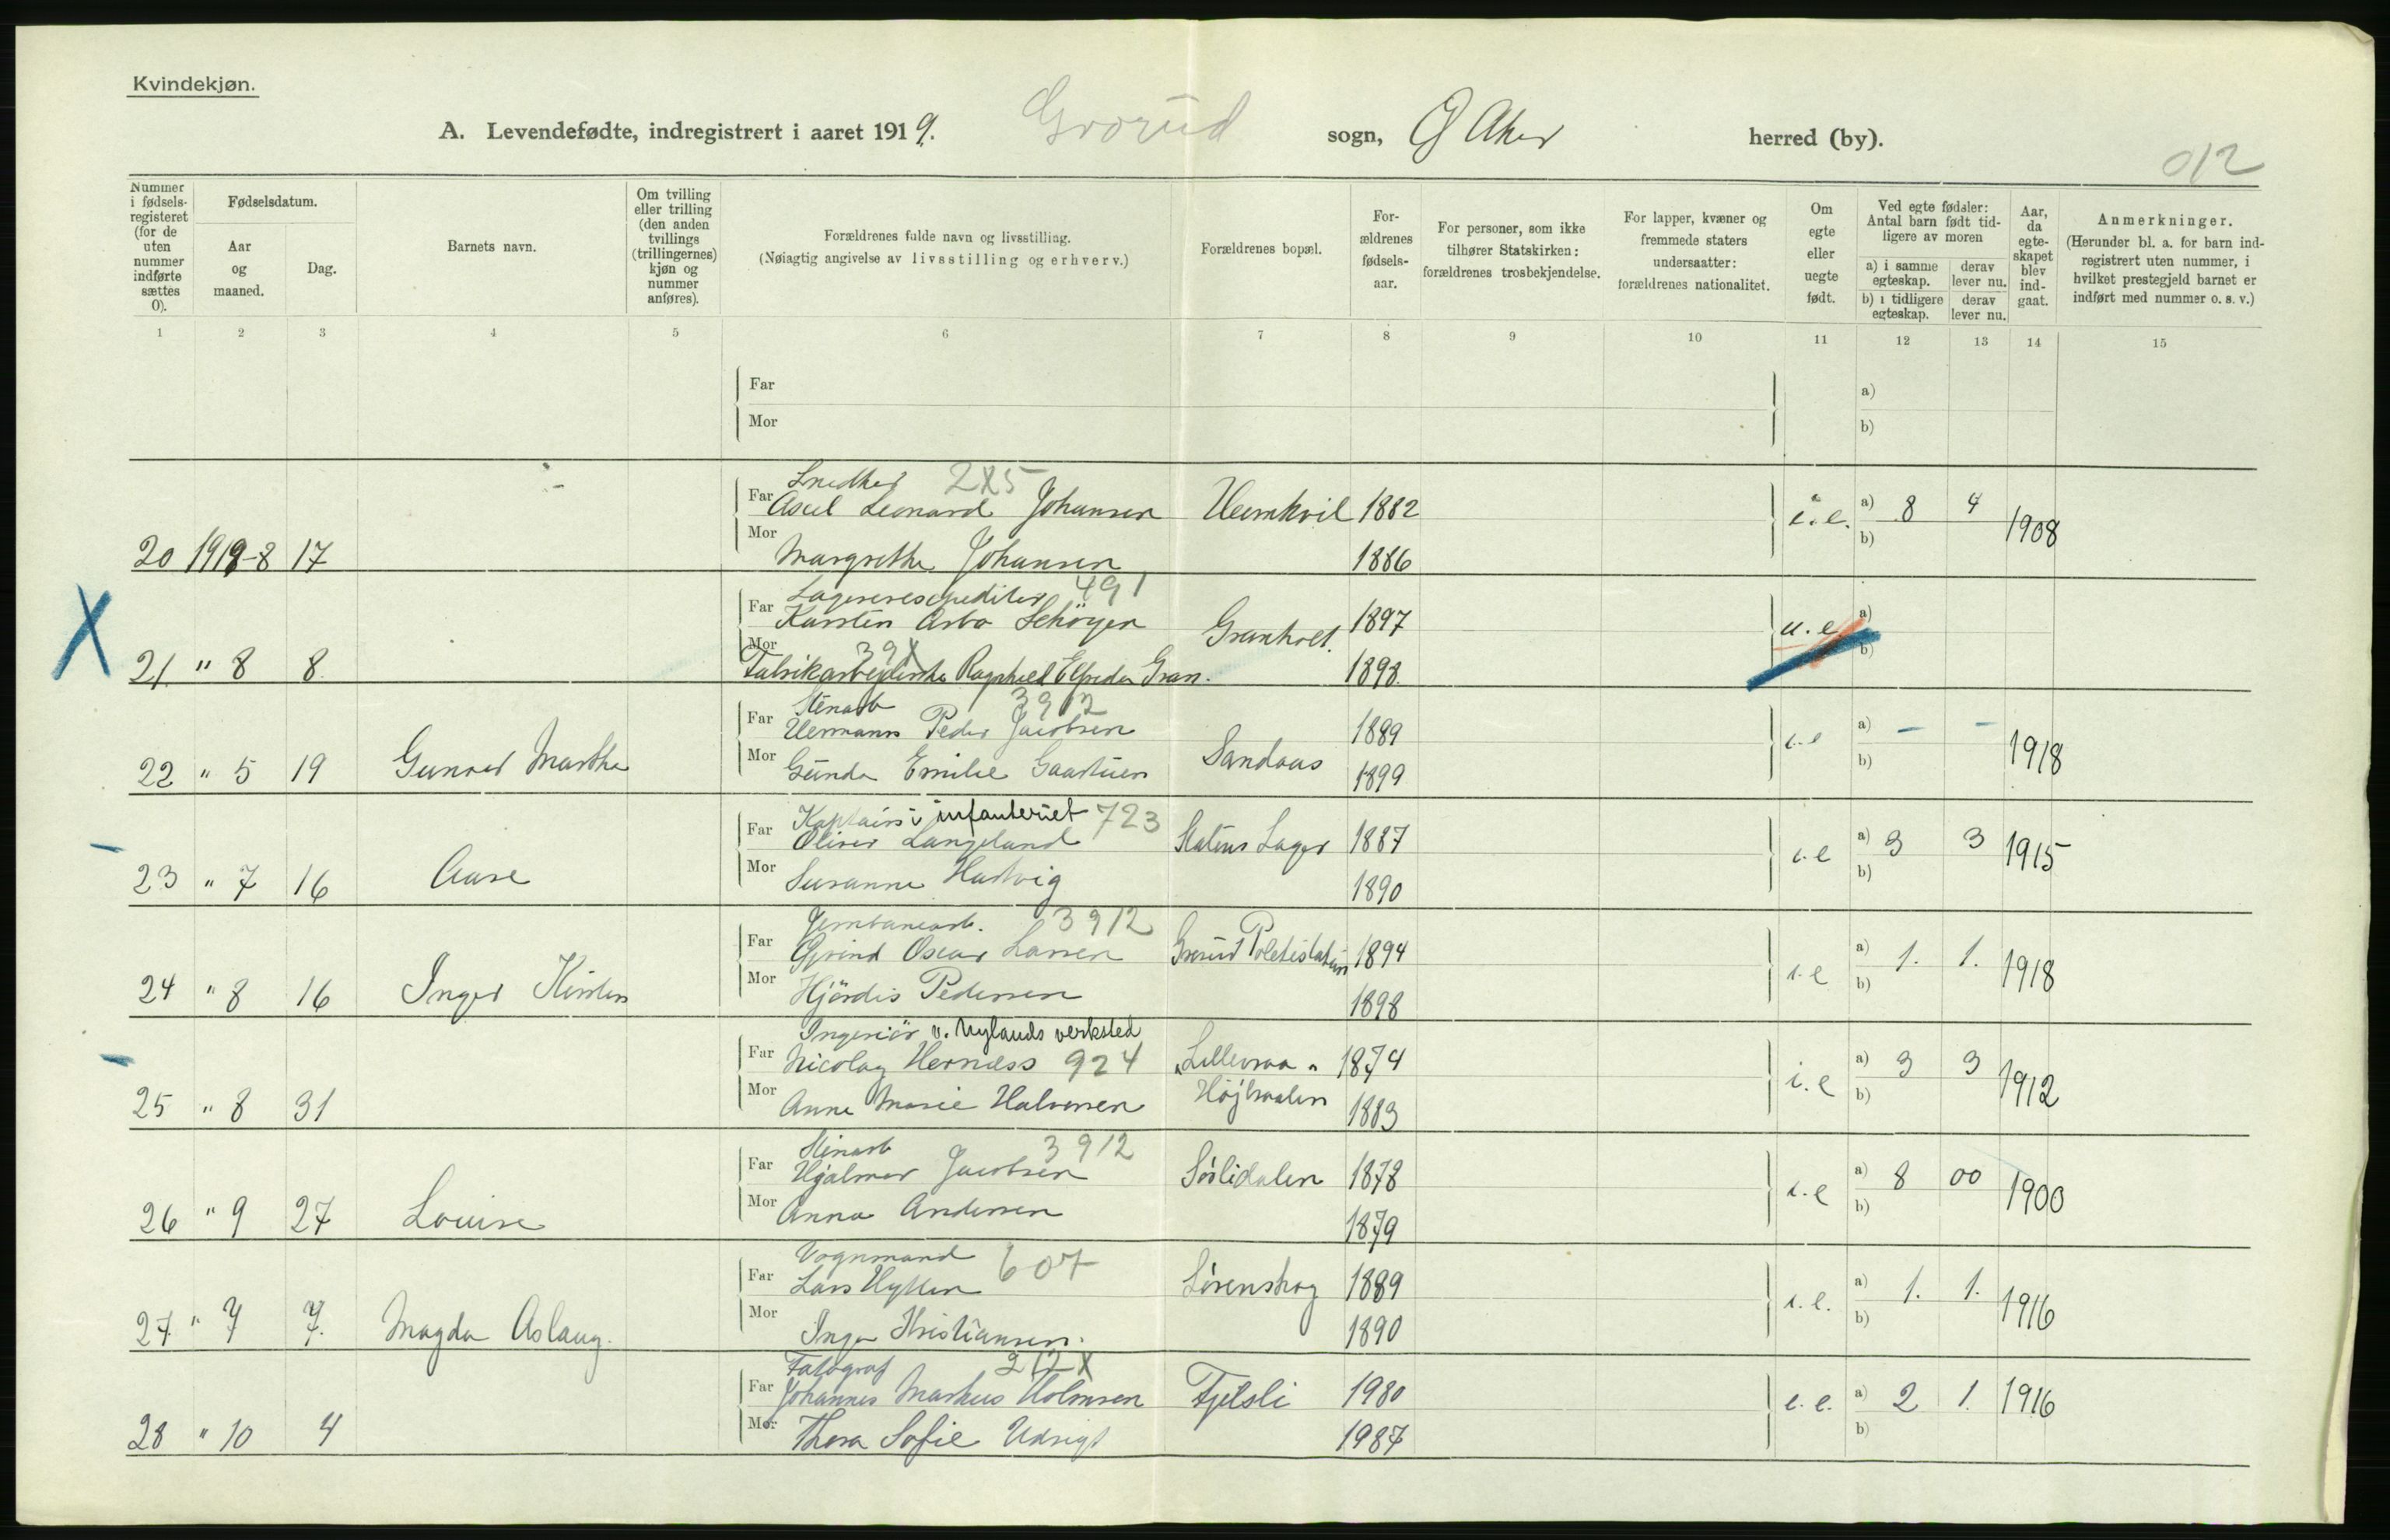 Kvindekjøn.
A. Levendefødte, indregistrert i aaret 1919. Grorud sogn, Ø Aker herred (by).
012
Nummer i fødselsregisteret (for de uten nummer indførte sættes 0).
Fødselsdatum.
Aar og maaned.
Dag.
Barnets navn.
Om tvilling eller trilling (den anden tvillings (trillingernes) kjøn og nummer anføres).
Forældrenes fulde navn og livsstilling.
(Nøiagtig angivelse av livsstilling og erhverv.)
Forældrenes bopæl.
Forældrenes fødselsaar.
For personer, som ikke tilhører Statskirken: forældrenes trosbekjendelse.
For lapper, kvæner og fremmede staters undersaatter: forældrenes nationalitet.
Om egte eller uegte født.
Ved egte fødsler: Antal barn født tidligere av moren
a) i samme egteskap. derav lever nu.
b) i tidligere egteskap. derav lever nu.
Aar, da egteskapet blev indgaat.
Anmerkninger.
(Herunder bl. a. for barn indregistrert uten nummer, i hvilket prestegjeld barnet er indført med nummer o. s. v.)
1 2 3 4 5 6 7 8 9 10 11 12 13 14 15
Far a)
Mor b)
Snedker 2X5
Far Axel Leonard Johansen Heimkvil 1882 i.e. a) 8 4 1908
Mor Margrethe Johansen 1886 b)
20 1919-8 17
Lagerexpeditør 491
Far Karsten Arbo Schöyen Granholt. 1897 u.e a)
Mor 39X
Fabrikarbeiderske Ragnhild Elfrida Gran. 1898 b)
21 " 8 8
Stenarb 3912
Far Hermann Peder Jacobsen Sandaas 1889 i.e a) - - 1918
Mor Gunda Emilie Gaastuen 1899 b)
22 " 5 19 Gunvor Martha
Kaptain i infanteriet 723
Far Oliver Langeland Statens Lager 1887 i.e a) 3 3 1915
Mor Susanne Hartvig 1890 b)
23 " 7 16 Aase
Jernbanearb. 3912
Far Øivind Oscar Larsen Grorud Politistation 1894 i.e a) 1. 1. 1918
Mor Hjördis Pedersen 1898 b)
24 " 8 16 Inger Kirsten
Ingeniör v. Nylands verksted
Far Nicolay Hernæss 924 "Lillevraa" 1874 i.e a) 3 3 1912
Mor Anne Marie Halvorsen Höjbraaten 1883 b)
25 " 8 31
Stenarb 3912
Far Hjalmar Jacobsen Sörlidalen 1878 i.e a) 8 00 1900
Mor Anna Andersen 1879 b)
26 " 9 27 Louise
Vognmand 607
Far Lars Hytten Lörenskog 1889 i.e. a) 1. 1. 1916
Mor Inga Kristiansen. 1890 b)
27 " 7 7. Magda Aslaug.
Fotograf 212X
Far Johannes Markus Holmsen Fjelsli 1980 e.e. a) 2 1. 1916
Mor Thora Sofie Udsigt 1987 b)
28 " 10 4